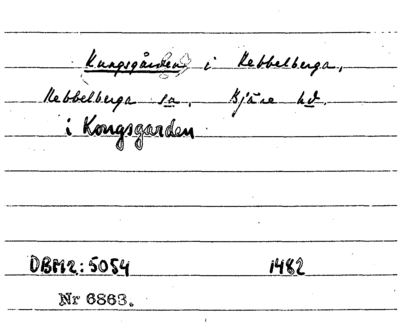 Kungsgården i Hebbelberga,
Hebbelberga sa. Bjäre hd.
i Kongsgarden
DBM2:5054 1482
Nr 6863.